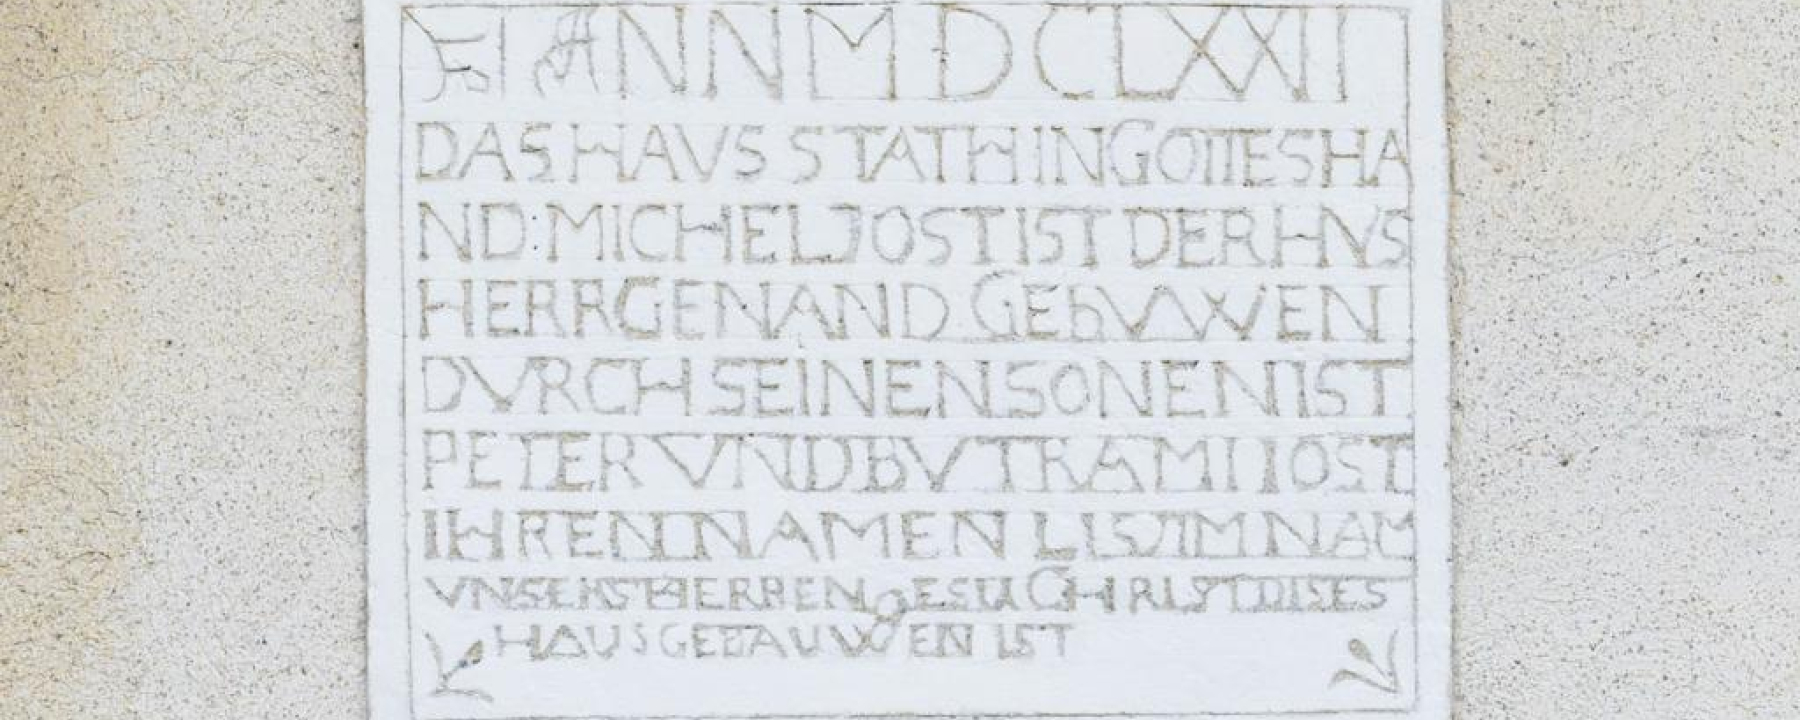 ANN M D C LXXII
DAS HAVS STATH IN GOTTES HA
ND MICHEL JOST IST DER HVS
HERR GENAND GEBVWEN
DVRCH SEINEN SONEN IST
PETER VND BVTRAM IOST
IHREN NAMEN IM NAM
VNSERS HERREN JESU CHRIST DISES
HAUS GEBAUWEN IST